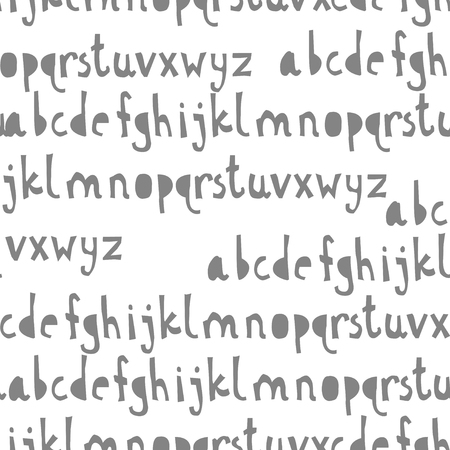 ijklmnopqrstuvxcdefgh
opqrstuvxwyz abcdefgh
abcdefghijklmnopqrstu
jklmnopqrstuvxwyz abc
vxwyz abcdefghijkl
cdefghijklmnopqrstuvx
abcdefghijklmnopqrstu
ijklmnopqrstuvxcdefgh